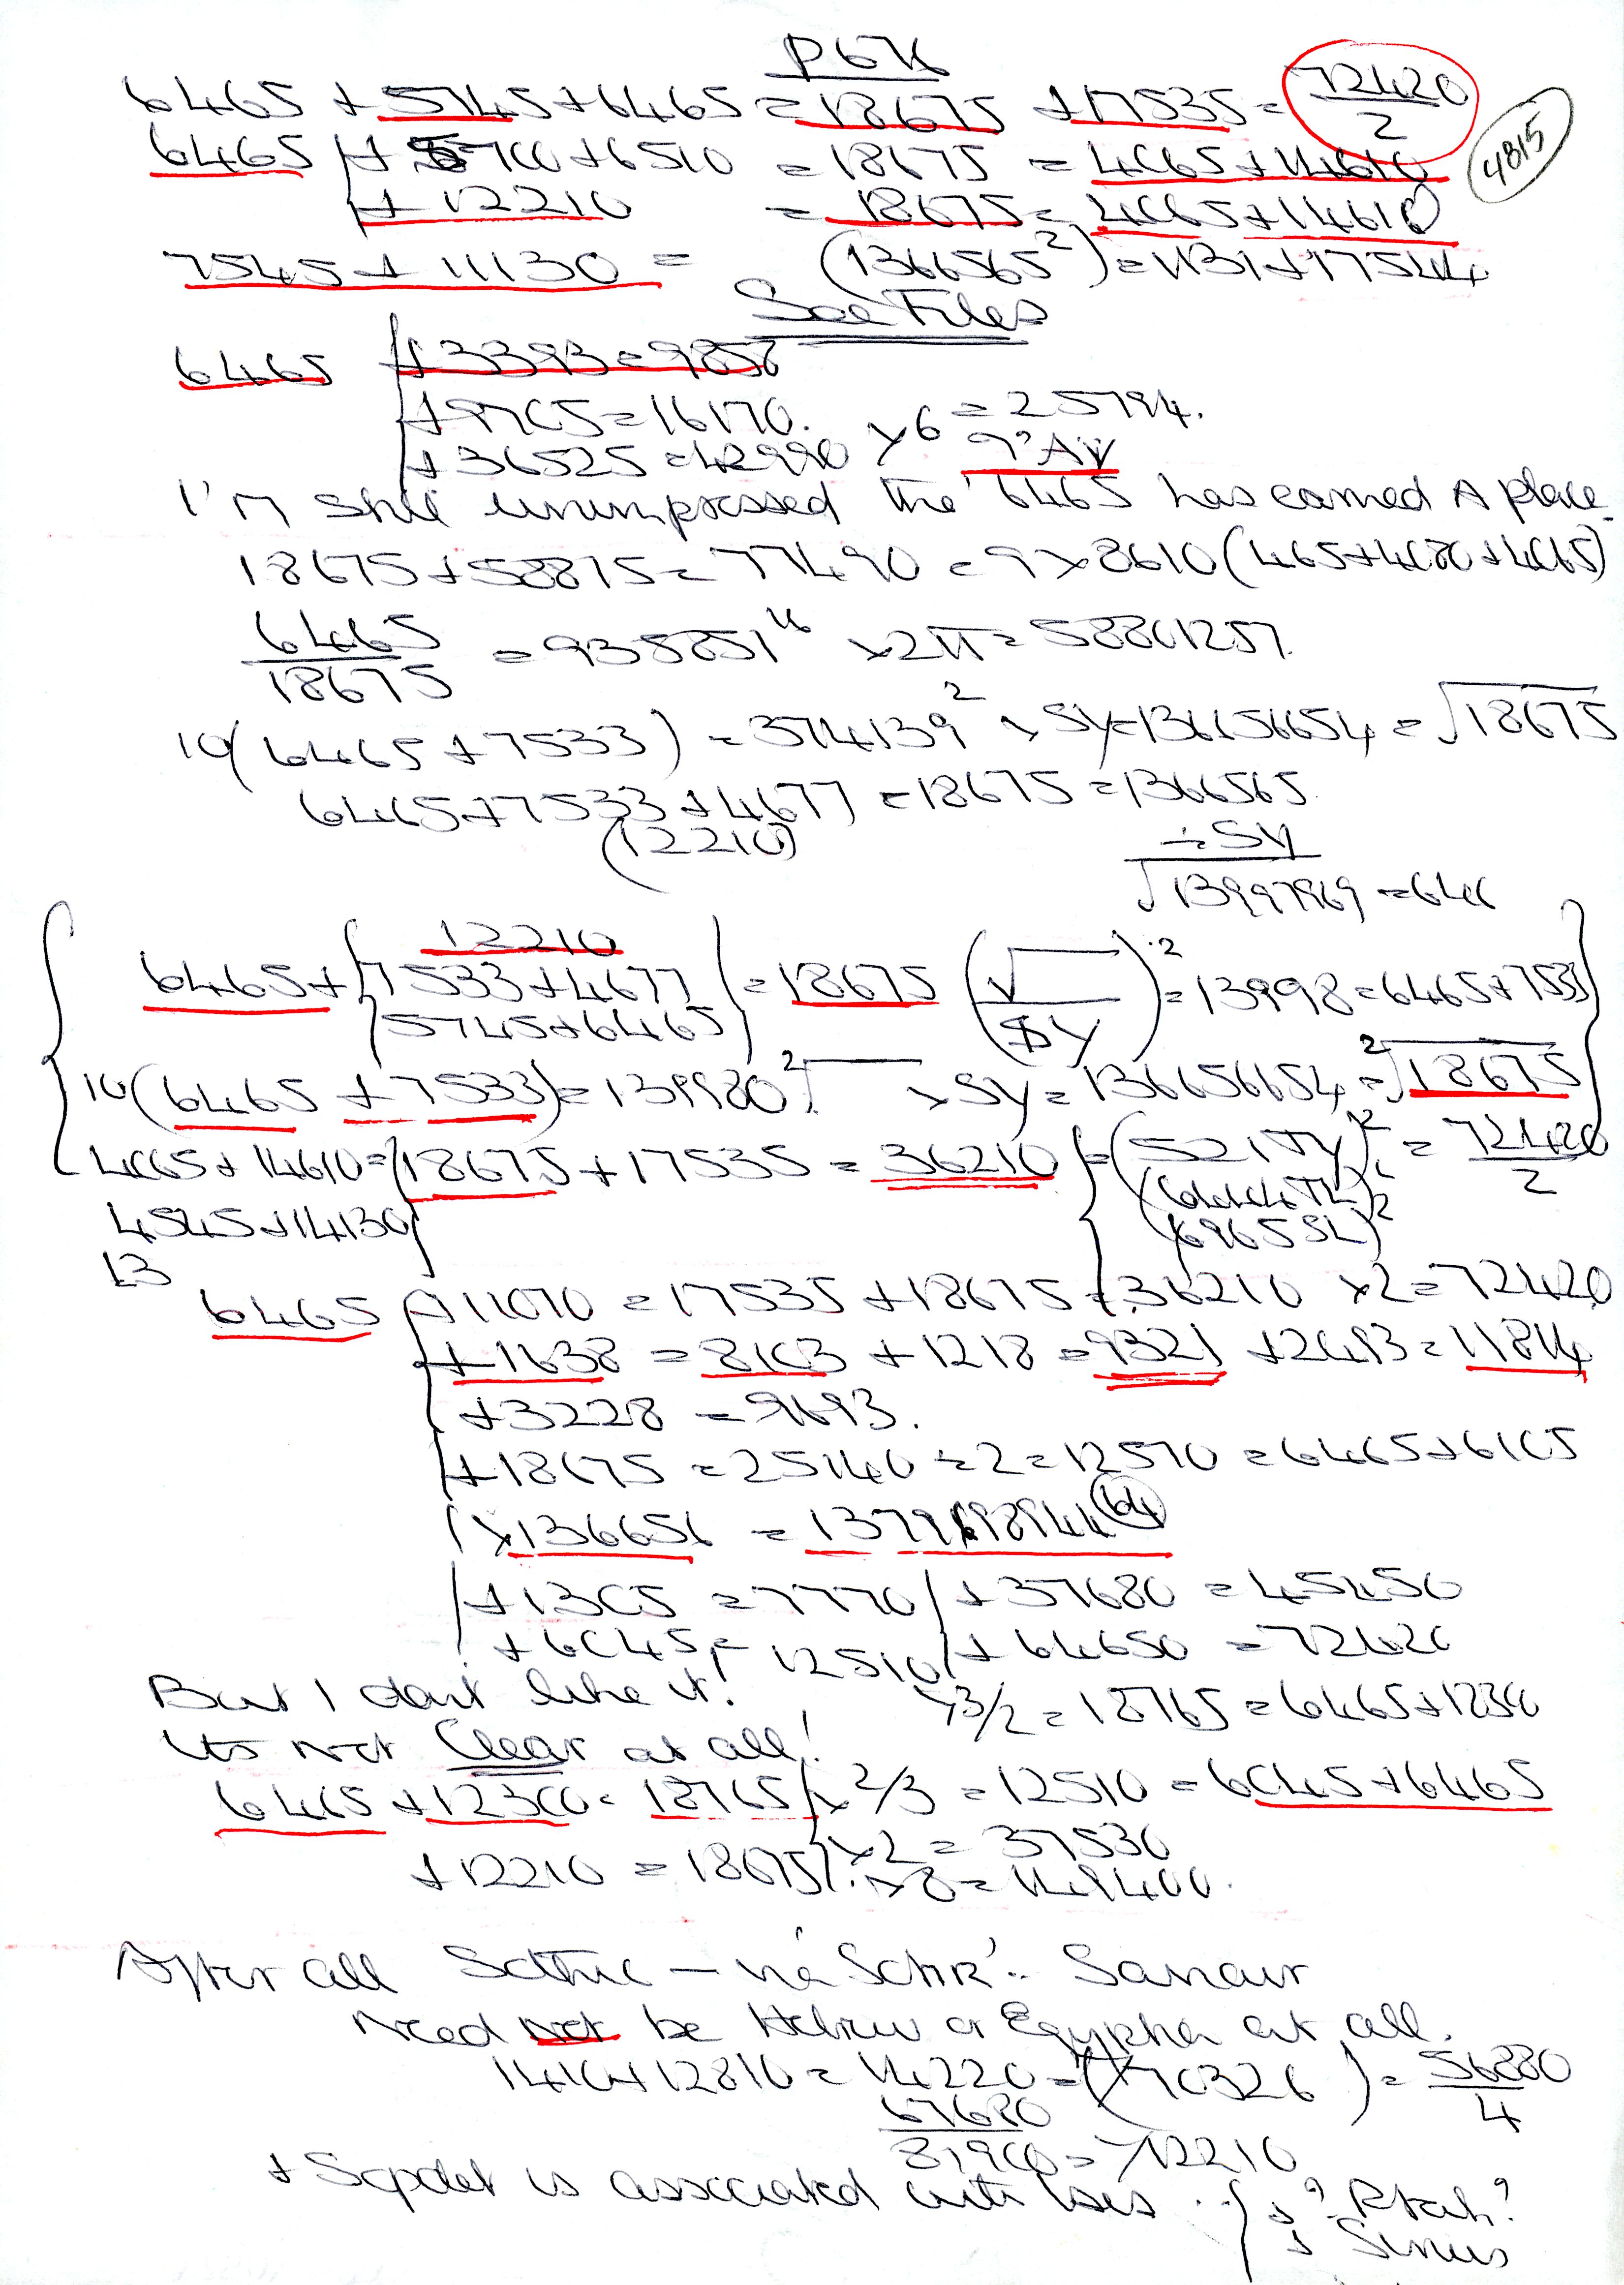 P64
6465 + 5745 + 6465 = 18675 + 17535 = 72420/2
4815
6465 + 5700 + 6510 = 18675 = 4065 + 14610
+ 12210 = 18675 = 4065 + 14610
7545 + 11130 = (1366565²) = 1131 + 17544
See Files
6465 + 3393 = 9858
+ 9705 = 16170.
+ 36525 = 42990 × 6 = 25794.
9° AV
I'm still unimpressed the 6465 has earned A place.
18675 + 58815 = 77490 = 9 × 8610 (465 + 4080 + 4065)
6465/18675 = 935851 × 2π = 58801257.
10(6465 + 7533) = 374139² × SY = 136656654 = √18675
6465 + 7533 + 4677 = 18675 = 1366565.
(12210)
÷ SY
√13997969 = 646
12210
6465 + {7533 + 4677} = 18675 (√/SY)² = 13998 = 6465 + 7533
5745 + 6465
10(6465 + 7533) = 139980 ²√ × SY = 136656654 = ²√18675
4065 + 14610 = 18675 + 17535 = 36210 = (521TY)² = 72420/2
(6444TL)²
4545 + 14130
(6965SL)²
13
6465 + 11070 = 17535 + 18675 = 36210 × 2 = 72420
+ 1638 = 8103 + 1218 = 9321 + 2493 = 11814
+ 3228 = 9693.
+ 18675 = 25140 ÷ 2 = 12570 = 6465 + 6105
× 136656 = 13791698944 (64)
+ 1305 = 7770 + 37680 = 45450
+ 6045 = 12510 + 64650 = 72420
But I don't like it!
× 3/2 = 18765 = 6465 + 12300
Its not Clear at all!
6465 + 12300 = 18765 × 2/3 = 12510 = 6045 + 6465
× 2 = 37530
+ 12210 = 18675 × 8 = 149400.
After all Sothic –
Need not be Hebrew or Egyptian at all.
1410 + 12810 = 14220 = (70326) = 56880/4
67680
81900 = 12210
+ Sopdet is associated with Isis .. + ? Ptah?
+ Sirius